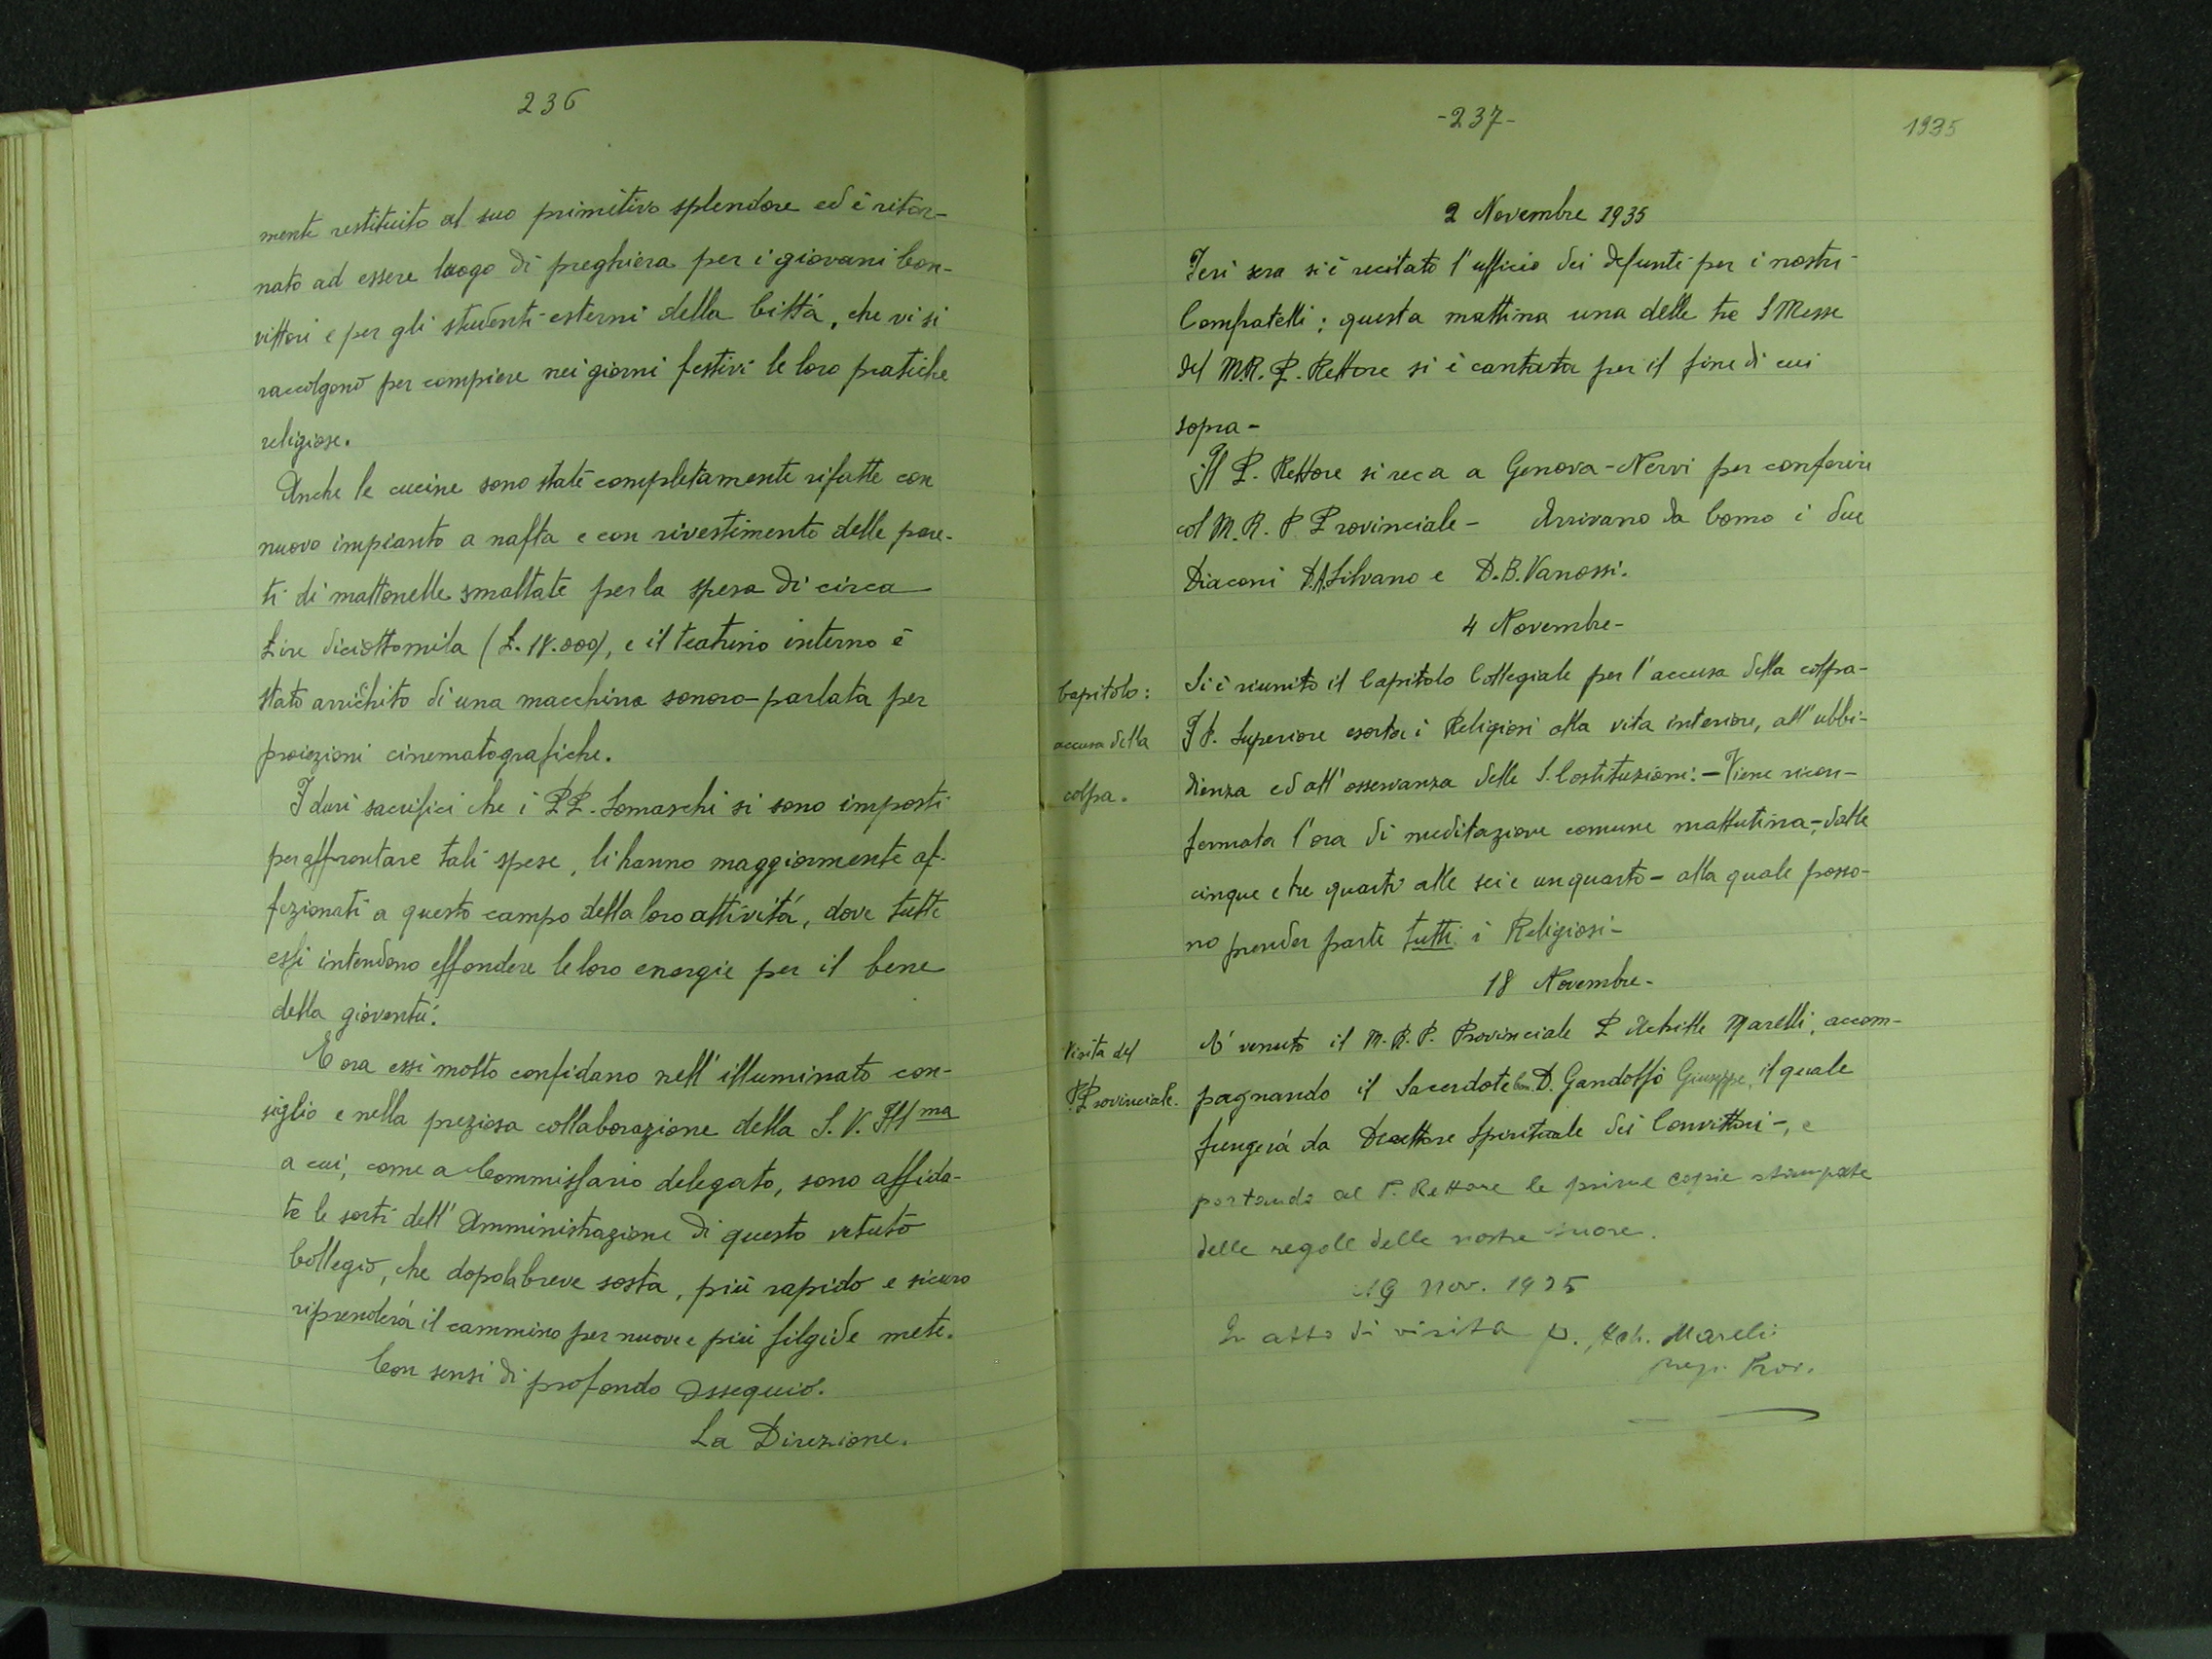 236
mente restituito al suo primitivo splendore ed è ritor-
nato ad essere luogo di preghiera per i giovani Con-
vittori e per gli studenti esterni della Città, che vi si
raccolgono per compiere nei giorni festivi le loro pratiche
religiose.
Anche le cucine sono state completamente rifatte con
nuovo impianto a nafta e con rivestimento delle pare-
ti di mattonelle smaltate per la spesa di circa
Lire diciottomila (L. 18.000), e il teatrino interno è
stato arricchito di una macchina sonoro-parlata per
proiezioni cinematografiche.
I duri sacrifici che i PP. Somaschi si sono imposti
per affrontare tali spese, li hanno maggiormente af-
fezionati a questo campo della loro attività, dove tutte
essi intendono effondere le loro energie per il bene
della gioventù.
E ora essi molto confidano nell'illuminato con-
siglio e nella preziosa collaborazione della S. V. Ill ma
a cui, come a Commissario delegato, sono affida-
te le sorti dell'Amministrazione di questo vetusto
Collegio, che dopo la breve sosta, più rapido e sicuro
riprenderà il cammino per nuove e più fulgide mete.
Con sensi di profondo ossequio.
La Direzione.
-237-
1935
2 Novembre 1935
Ieri sera si è recitato l'ufficio dei defunti per i nostri
Confratelli; questa mattina una delle tre S Messe
del M.R.P. Rettore si è cantata per il fine di cui
sopra-
Il P. Rettore si reca a Genova-Nervi per conferire
col M.R.P Provinciale- Arrivano da Como i due
Diaconi D.A.Silvano e D.B.Vanossi.
4 Novembre-
Capitolo:
accusa della
colpa.
Si è riunito il Capitolo Collegiale per l'accusa della colpa-
Il P. Superiore esorta i Religiosi alla vita interiore, all'ubbi-
dienza ed all'osservanza delle S. Costituzioni:-Viene ricon-
fermata l'ora di meditazione comune mattutina-, dalle
cinque e tre quarti alle sei e un quarto- alla quale posso-
no prender parte tutti i Religiosi-
18 Novembre-
Visita del
P.Provinciale.
E' venuto il M.R.P. Provinciale P Achille Marelli, accom-
pagnando il Sacerdote D. Gandolfo Giuseppe, il quale
fungerà da Direttore Spirituale dei Convittori-, e
portando al P. Rettore le prime copie stampate
delle regole delle nostre suore.
19 Nov. 1935
In atto di visita p. Ach. Marelli
prep. Prov.